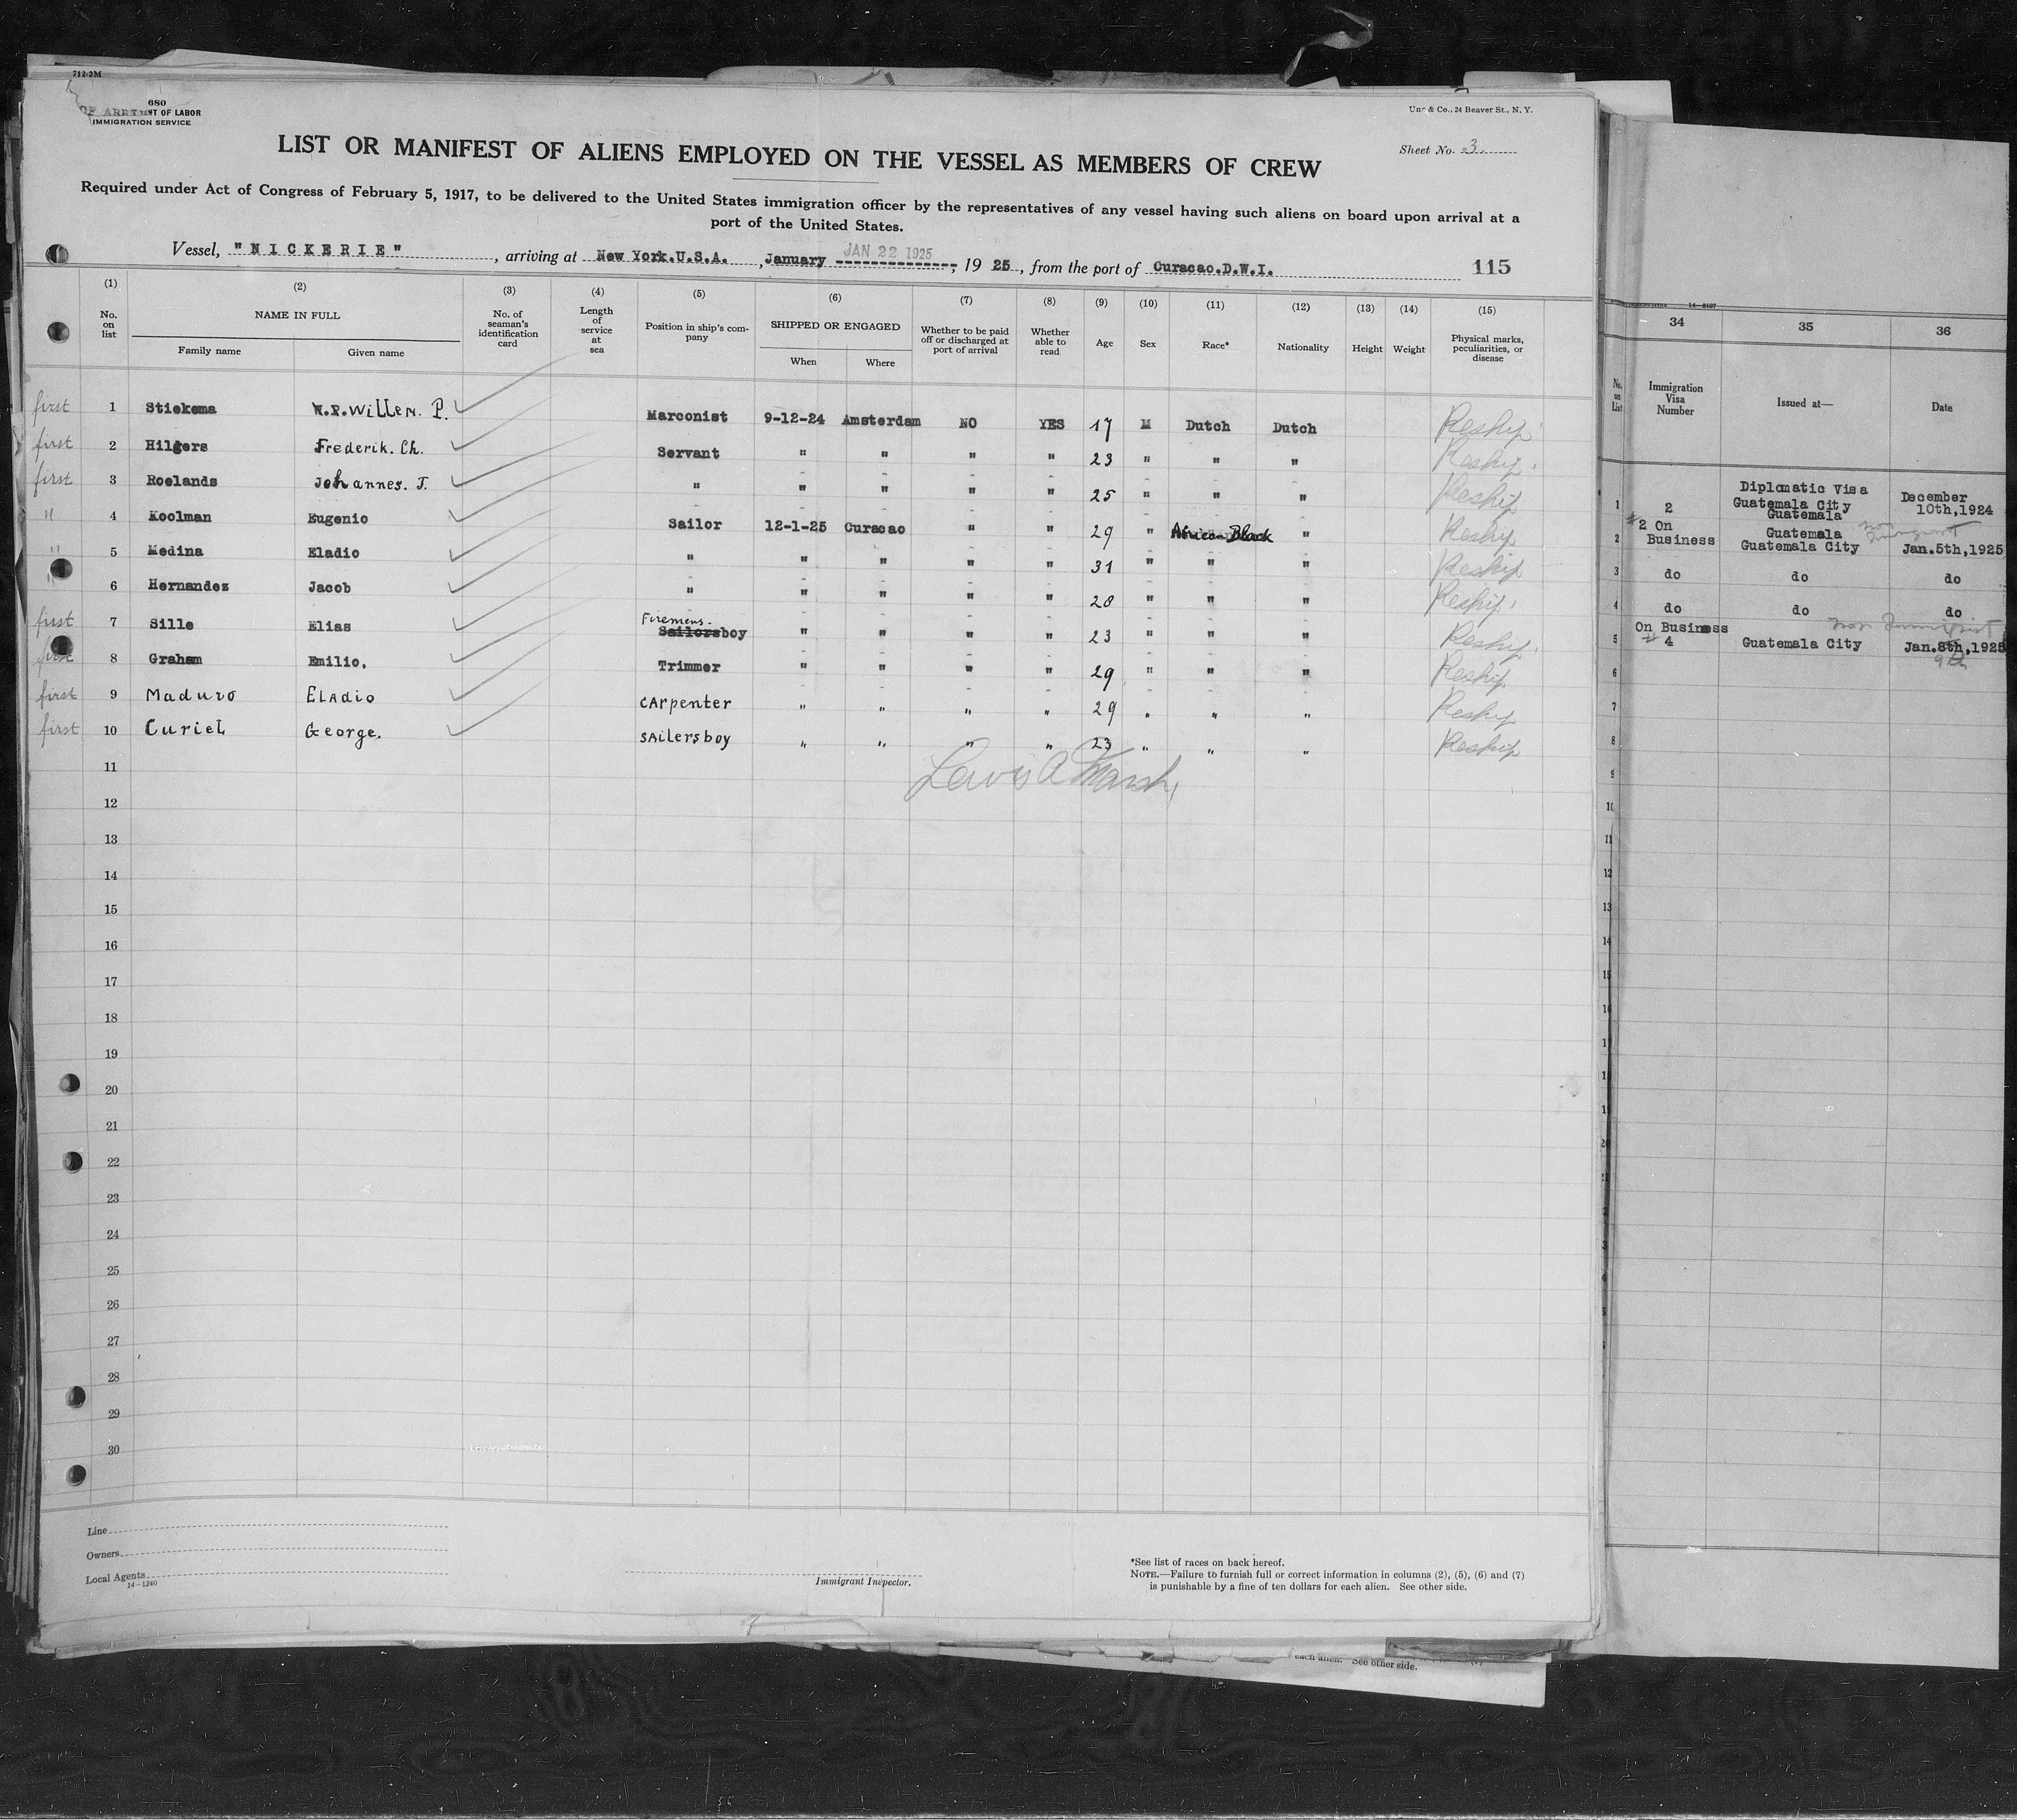 712-2M
680
NT OF LABOR
IMMIGRATION SERVICE
& Co., 24 Beaver St., N. Y.
LIST OR MANIFEST OF ALIENS EMPLOYED ON THE VESSEL AS MEMBERS OF CREW
Sheet No. 3.
Required under Act of Congress of February 5, 1917, to be delivered to the United States immigration officer by the representatives of any vessel having such aliens on board upon arrival at a
port of the United States.
Vessel, "NICKERIE", arriving at New York.U.S.A. , January JAN 22 1925, 19 25, from the port of Curacao.D.W.I. 115
(1) (2) (3) (4) (5) (6) (7) (8) (9) (10) (11) (12) (13) (14) (15)
No. on list NAME IN FULL Family name Given name No. of seaman's identification card Length of service at sea Position in ship's company SHIPPED OR ENGAGED When Where Whether to be paid off or discharged at port of arrival Whether able to read Age Sex Race* Nationality Height Weight Physical marks, peculiarities, or disease
first 1 Stiekema Willem. P. Marconist 9-12-24 Amsterdam NO YES 17 M Dutch Dutch Reship
first 2 Hilgers Frederik. Ch. Servant " " " " 23 " " " Reship.
first 3 Roelands Johannes. J. " " " " " 25 " " " Reship
" 4 Koolman Eugenio Sailor 12-1-25 Curacao " " 29 " Black " Reship
" 5 Medina Eladio " " " " " 31 " " " Reship
" 6 Hernandez Jacob " " " " " 28 " " " Reship
first 7 Sille Elias Firemens. Sailorsboy " " " " 23 " " " Reship
first 8 Graham Emilio. Trimmer " " " " 29 " " " Reship
first 9 Maduro Eladio Carpenter " " " " 29 " " " Reship
first 10 Curiel George. Sailersboy " " " " 23 " " " Reship
11
12
13
14
15
16
17
18
19
20
21
22
23
24
25
26
27
28
29
30
Line
Owners
Local Agents
14-1240
Immigrant Inspector.
*See list of races on back hereof.
NOTE.—Failure to furnish full or correct information in columns (2), (5), (6) and (7)
is punishable by a fine of ten dollars for each alien. See other side.
each alien. See other side.
34 35 36
No. on List Immigration Visa Number Issued at— Date
1 2 Diplomatic Visa Guatemala City Guatemala December 10th,1924
2 #2 On Business Guatemala Guatemala City Jan.5th,1925
3 do do do
4 do do do
5 On Business # 4 Guatemala City Jan.8th,1925
9th
6
7
8
9
10
11
12
13
14
15